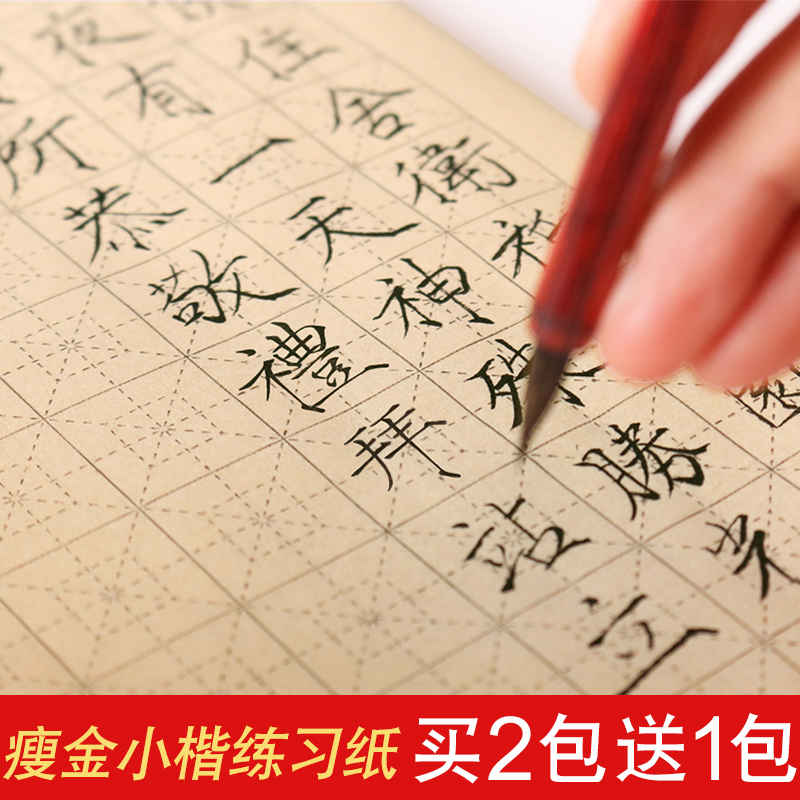 住舍衛
夜有一天神殊勝
所恭敬禮拜站立
瘦金小楷练习纸 买2包送1包